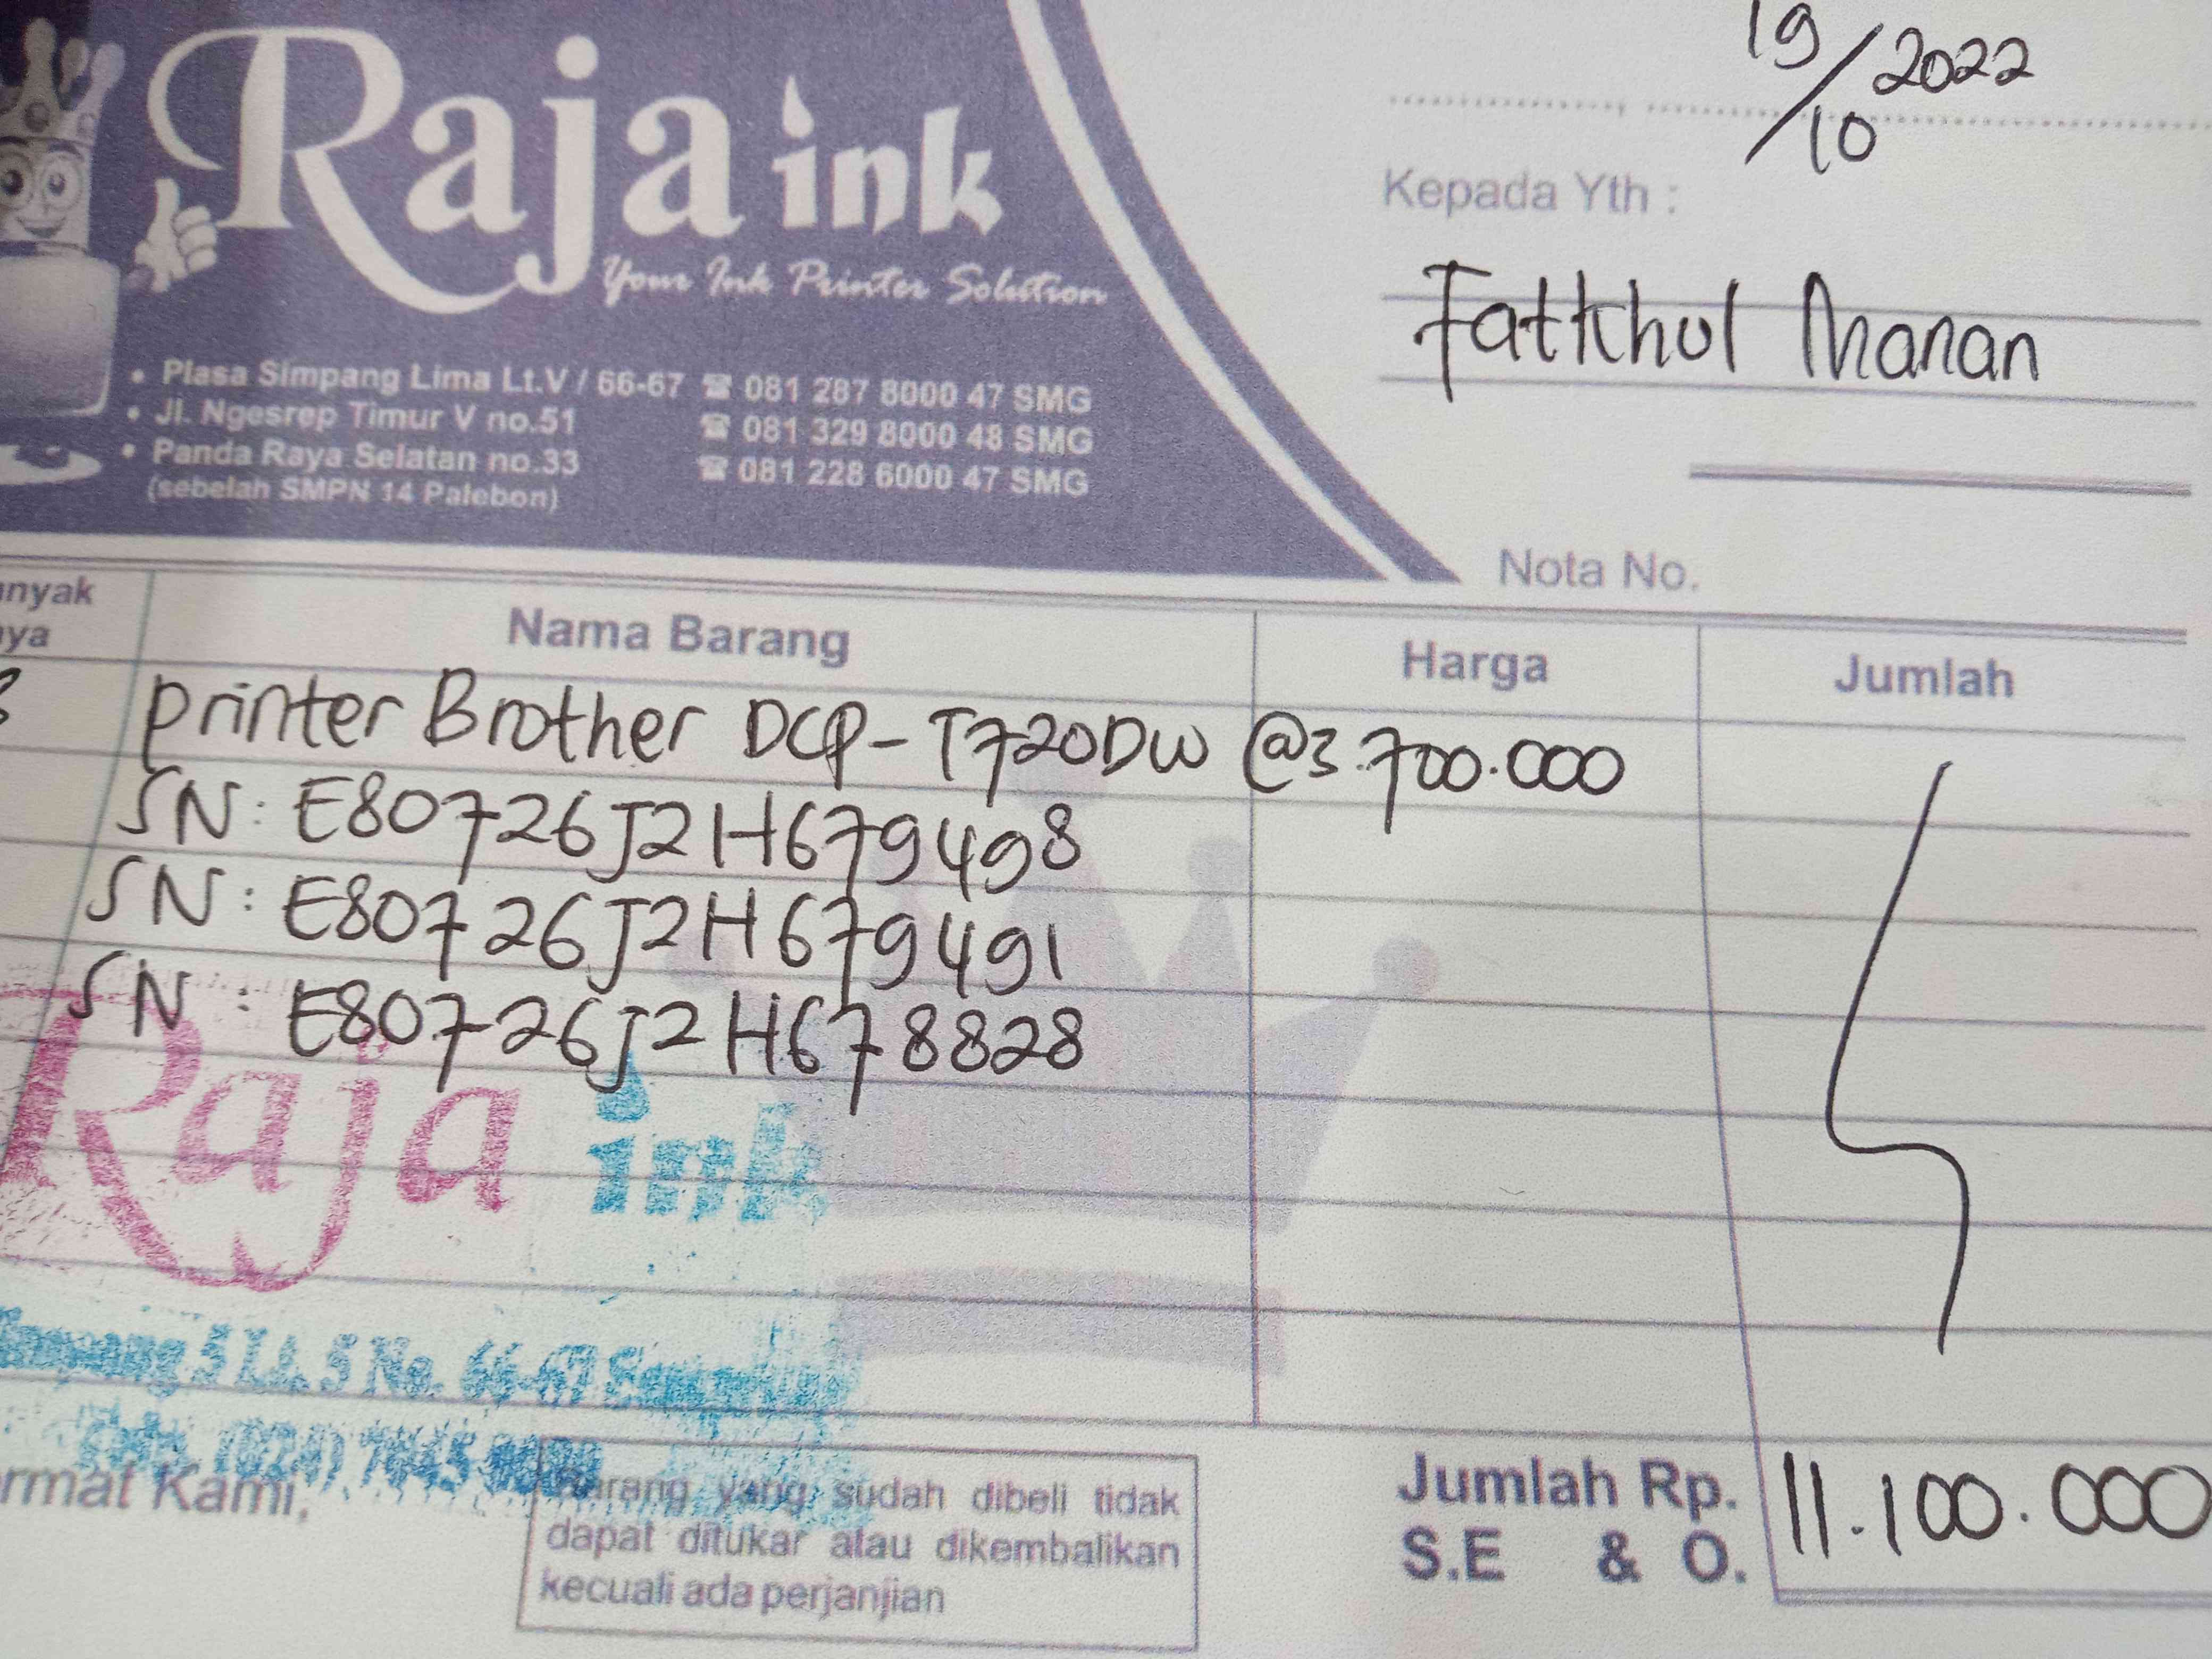 19/10 2022
Raja ink
Your Ink Printer Solution
Kepada Yth :
Fatkhul Manan
• Plasa Simpang Lima Lt.V / 66-67 ☎ 081 287 8000 47 SMG
• Jl. Ngesrep Timur V no.51 ☎ 081 329 8000 48 SMG
• Panda Raya Selatan no.33 ☎ 081 228 6000 47 SMG
(sebelah SMPN 14 Palebon)
Nota No.
anyak
nya
Nama Barang Harga Jumlah
3 Printer Brother DCP-T720DW @3.700.000
SN: E80726J2H679498
SN: E80726J2H679491
SN: E80726J2H678828
Raja ink
5 Lt. 5 No. 66-67
(024)
ormat Kami,
Barang yang sudah dibeli tidak
dapat ditukar atau dikembalikan
kecuali ada perjanjian
Jumlah Rp. 11.100.000
S.E & O.